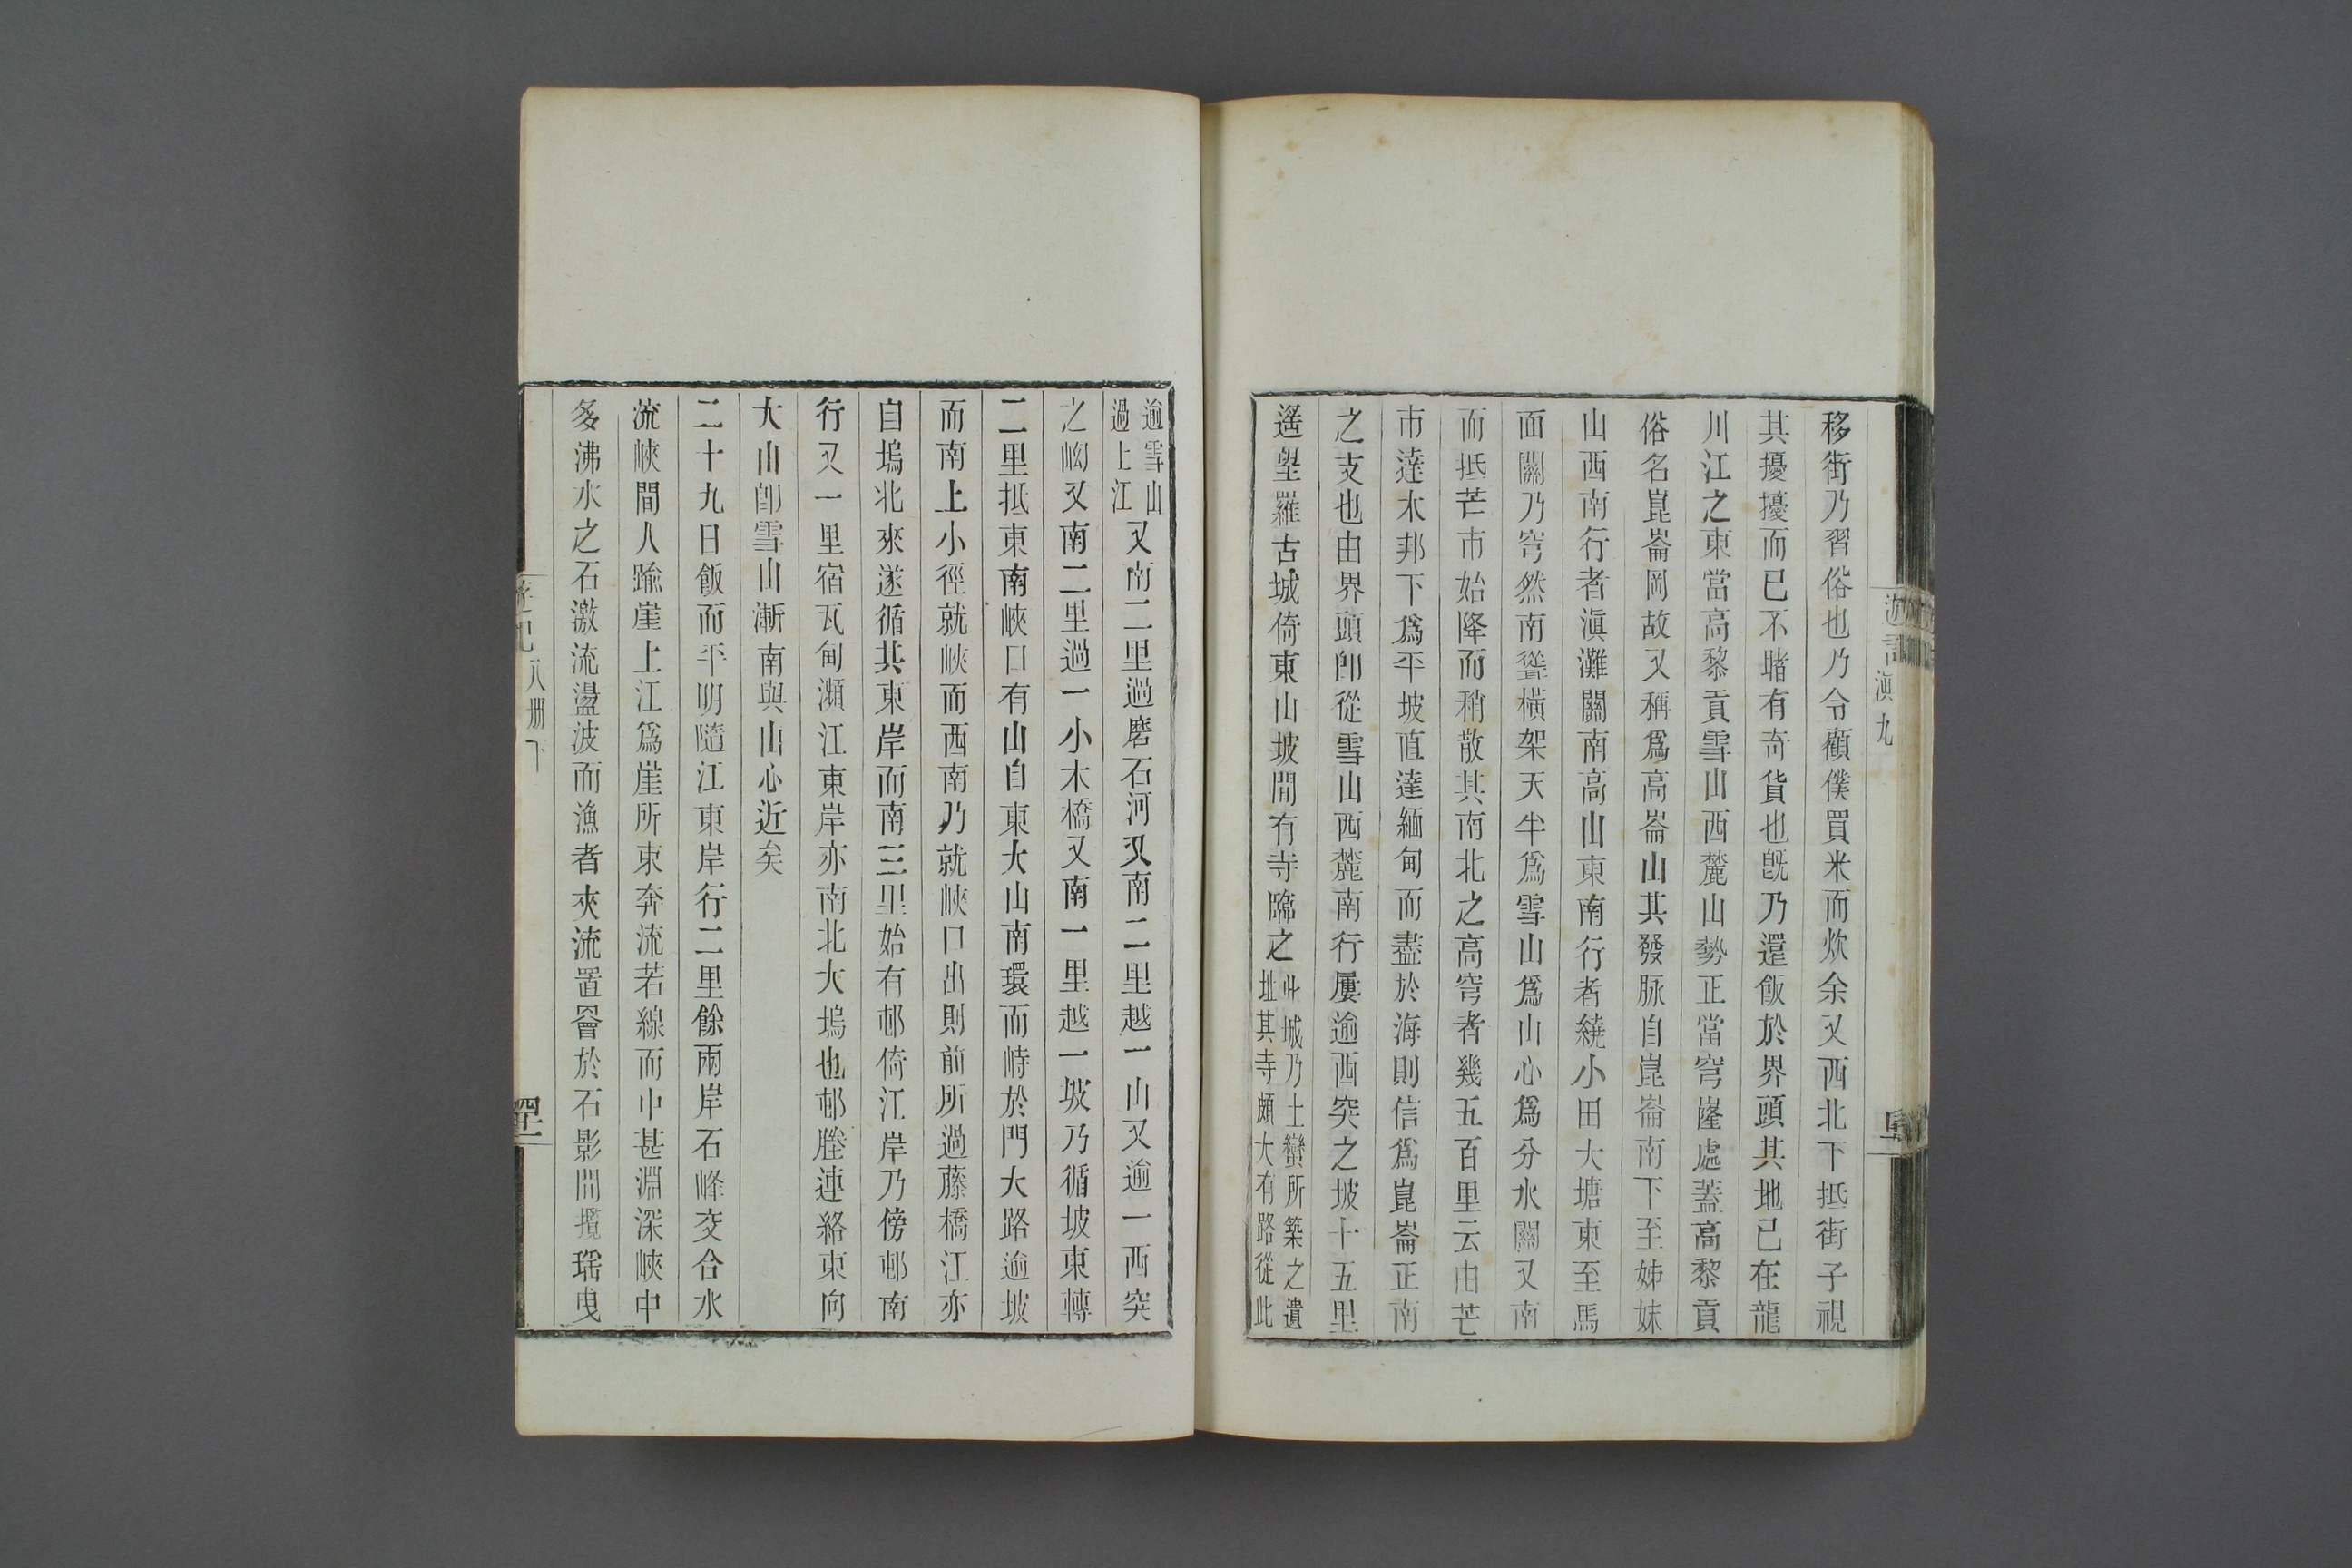 移街乃習俗也乃令顧僕買米而炊余又西北下抵街子視
其擾擾而已不睹有奇貨也旣乃還飯於界頭其地已在龍
川江之東當高黎貢雪山西麓山勢正當穹窿處蓋高黎貢
俗名崑崙岡故又稱爲高崙山其發脉自崑崙南下至姊妹
山西南行者滇灘關南高山東南行者繞小田大塘東至馬
面關乃穹然南聳橫架天半爲雪山爲山心爲分水關又南
而抵芒市始降而稍散其南北之高穹者幾五百里云由芒
市達木邦下爲平坡直達緬甸而盡於海則信爲崑崙正南
之支也由界頭卽從雪山西麓南行屢逾西突之坡十五里
遙望羅古城倚東山坡間有寺臨之
此城乃土蠻所築之遺
址其寺頗大有路從此
逾雪山
過上江
又南二里過磨石河又南二里越一山又逾一西突
之峫又南二里過一小木橋又南一里越一坡乃循坡東轉
二里抵東南峽口有山自東大山南環而峙於門大路逾坡
而南上小徑就峽而西南乃就峽口出則前所過藤橋江亦
自塢北來遂循其東岸而南三里始有邨倚江岸乃傍邨南
行又一里宿瓦甸瀕江東岸亦南北大塢也邨塍連絡東向
大山卽雪山漸南與山心近矣
二十九日飯而平明隨江東岸行二里餘兩岸石峰交合水
流峽間人踰崖上江爲崖所束奔流若線而中甚淵深峽中
多沸水之石激流盪波而漁者夾流置罾於石影間攬瑶曳
遊記
滇九
八册下